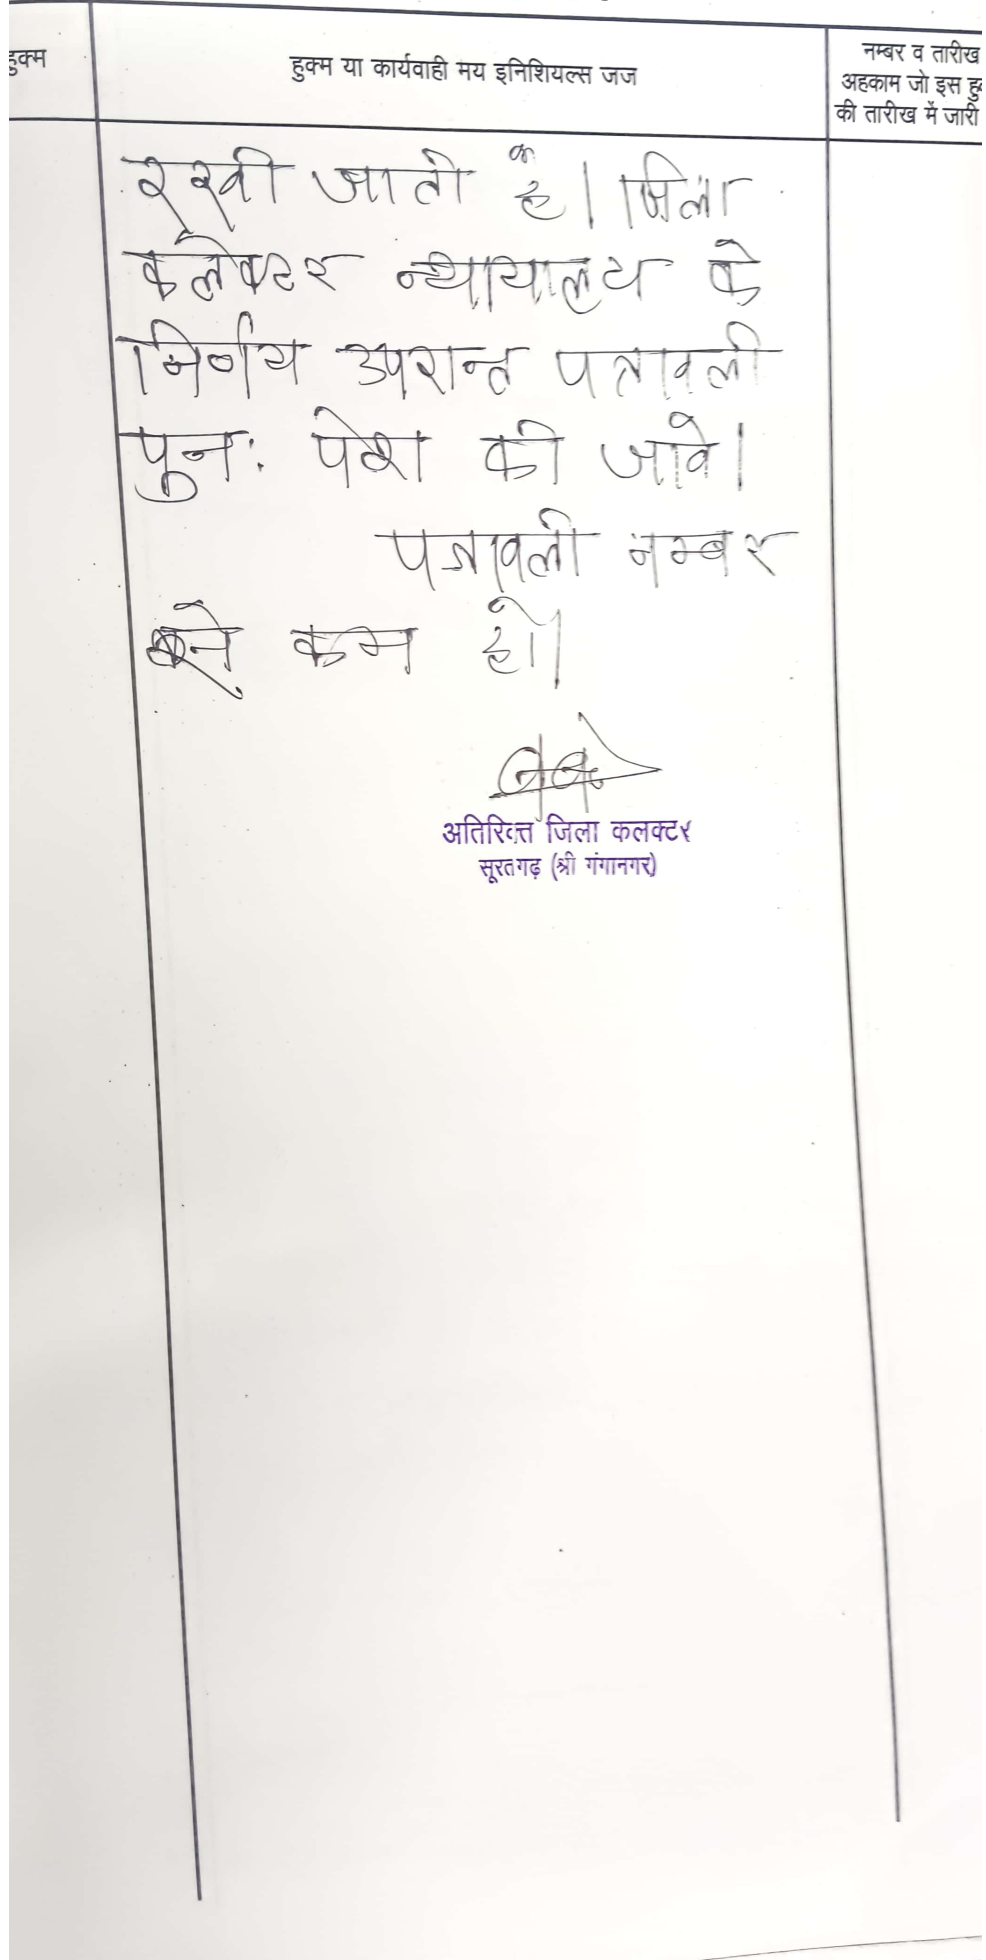 हुक्म
हुक्म या कार्यवाही मय इनिशियल्स जज
नम्बर व तारीख
अहकाम जो इस हु
की तारीख में जारी
रखी जाती है। जिला
कलेक्टर न्यायालय के
निर्णय उपरान्त पत्रावली
पुनः पेश की जावे।
पत्रावली नम्बर
से कम हो।
अतिरिक्त जिला कलक्टर
सूरतगढ़ (श्री गंगानगर)